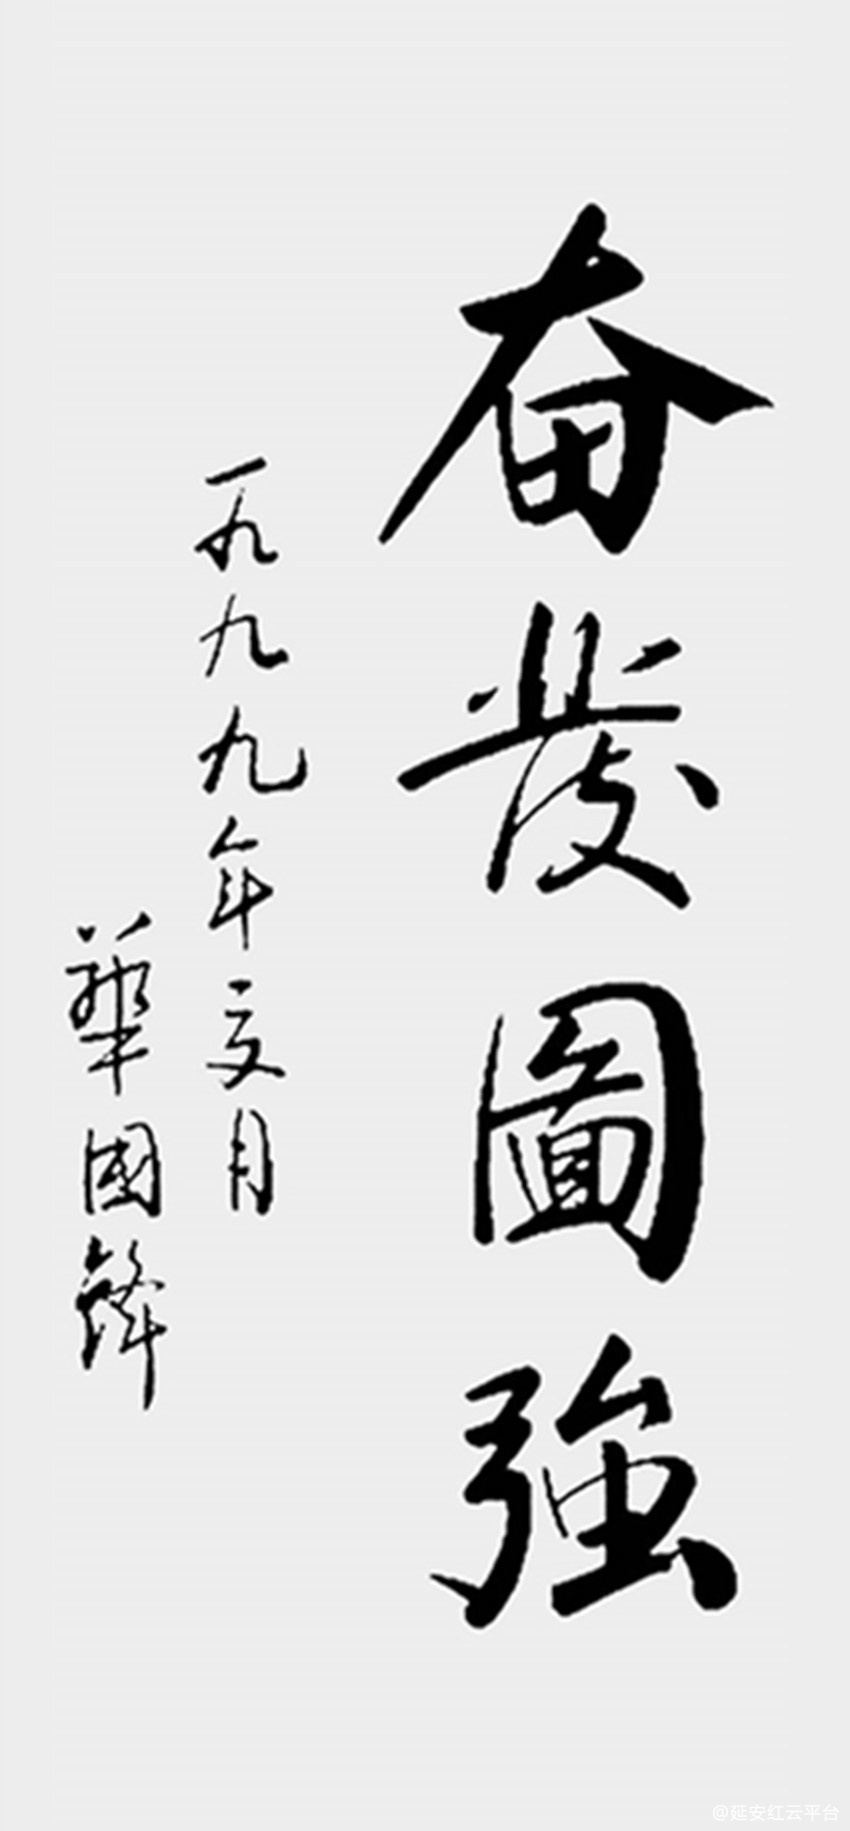 奋發圖強
一九九九年夏月
華國鋒
@延安红云平台